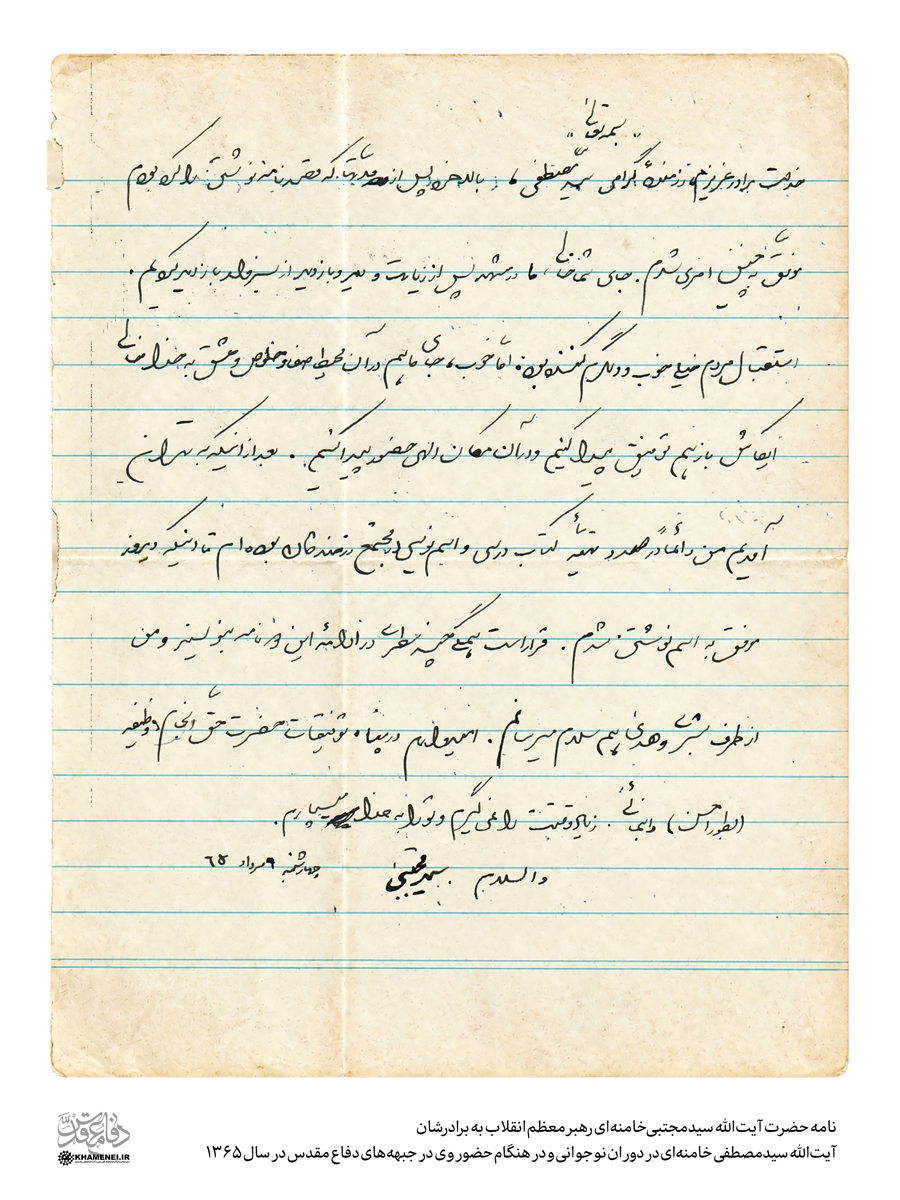 "بسمه تعالی"
خدمت برادر عزیزم، رزمندهٔ گرامی سید مصطفی، بالاخره پس از مدتها که قصد نامه نوشتن را کرده بودم
موفق به چنین امری شدم. جای شما خالی، ما در مشهد پس از زیارت و دیدوبازدید از سبزوار بازدید کردیم.
استقبال مردم خیلی خوب و دلگرم کننده بود. اما خوب، جای ما هم در آن محیط صفا و خلوص و عشق به خدا خالی
ایکاش باز هم توفیق پیدا کنیم و در آن مکان الهی حضور پیدا کنیم. بعد از اینکه به تهران
آمدیم من دائماً در صدد تهیهٔ کتاب درسی و اسم نویسی در مجتمع رزمندگان بوده ام تا اینکه دیروز
موفق به اسم نوشتن شدم. قرار است همگی در ادامهٔ این نامه بنویسند و من
از طرف بشری و هدی هم سلام میرسانم. امیدوارم در پناه توفیقات حضرت حق انجام وظیفه
(بطور احسن) بنمائی. زیاد وقتت را نمی گیرم و تو را به خدا میسپارم.
والسلام. سید مجتبی چهارشنبه ۹ مرداد ۶۵
نامه حضرت آیت‌الله سیدمجتبی خامنه‌ای رهبر معظم انقلاب به برادرشان
آیت‌الله سیدمصطفی خامنه‌ای در دوران نوجوانی و در هنگام حضور وی در جبهه‌های دفاع مقدس در سال ۱۳۶۵
دفاع مقدس
KHAMENEI.IR